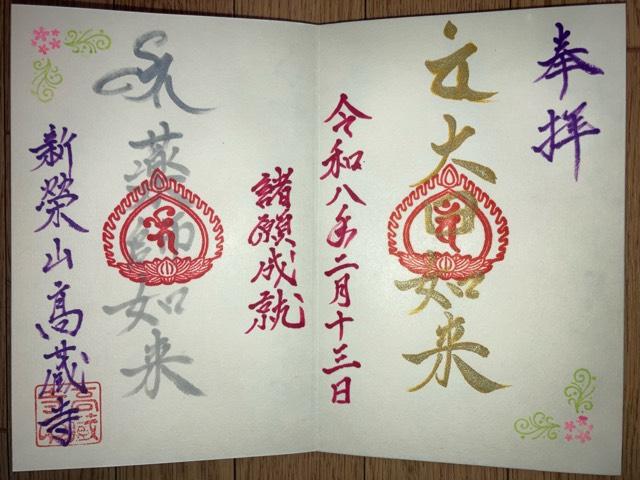 奉拝
大日如来
令和八年二月十三日
諸願成就
薬師如来
新榮山高蔵寺